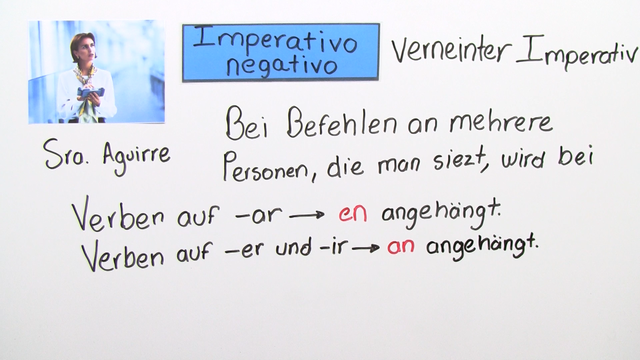 Imperativo
negativo
Verneinter Imperativ
Sra. Aguirre
Bei Befehlen an mehrere
Personen, die man siezt, wird bei
Verben auf -ar → en angehängt.
Verben auf -er und -ir → an angehängt.